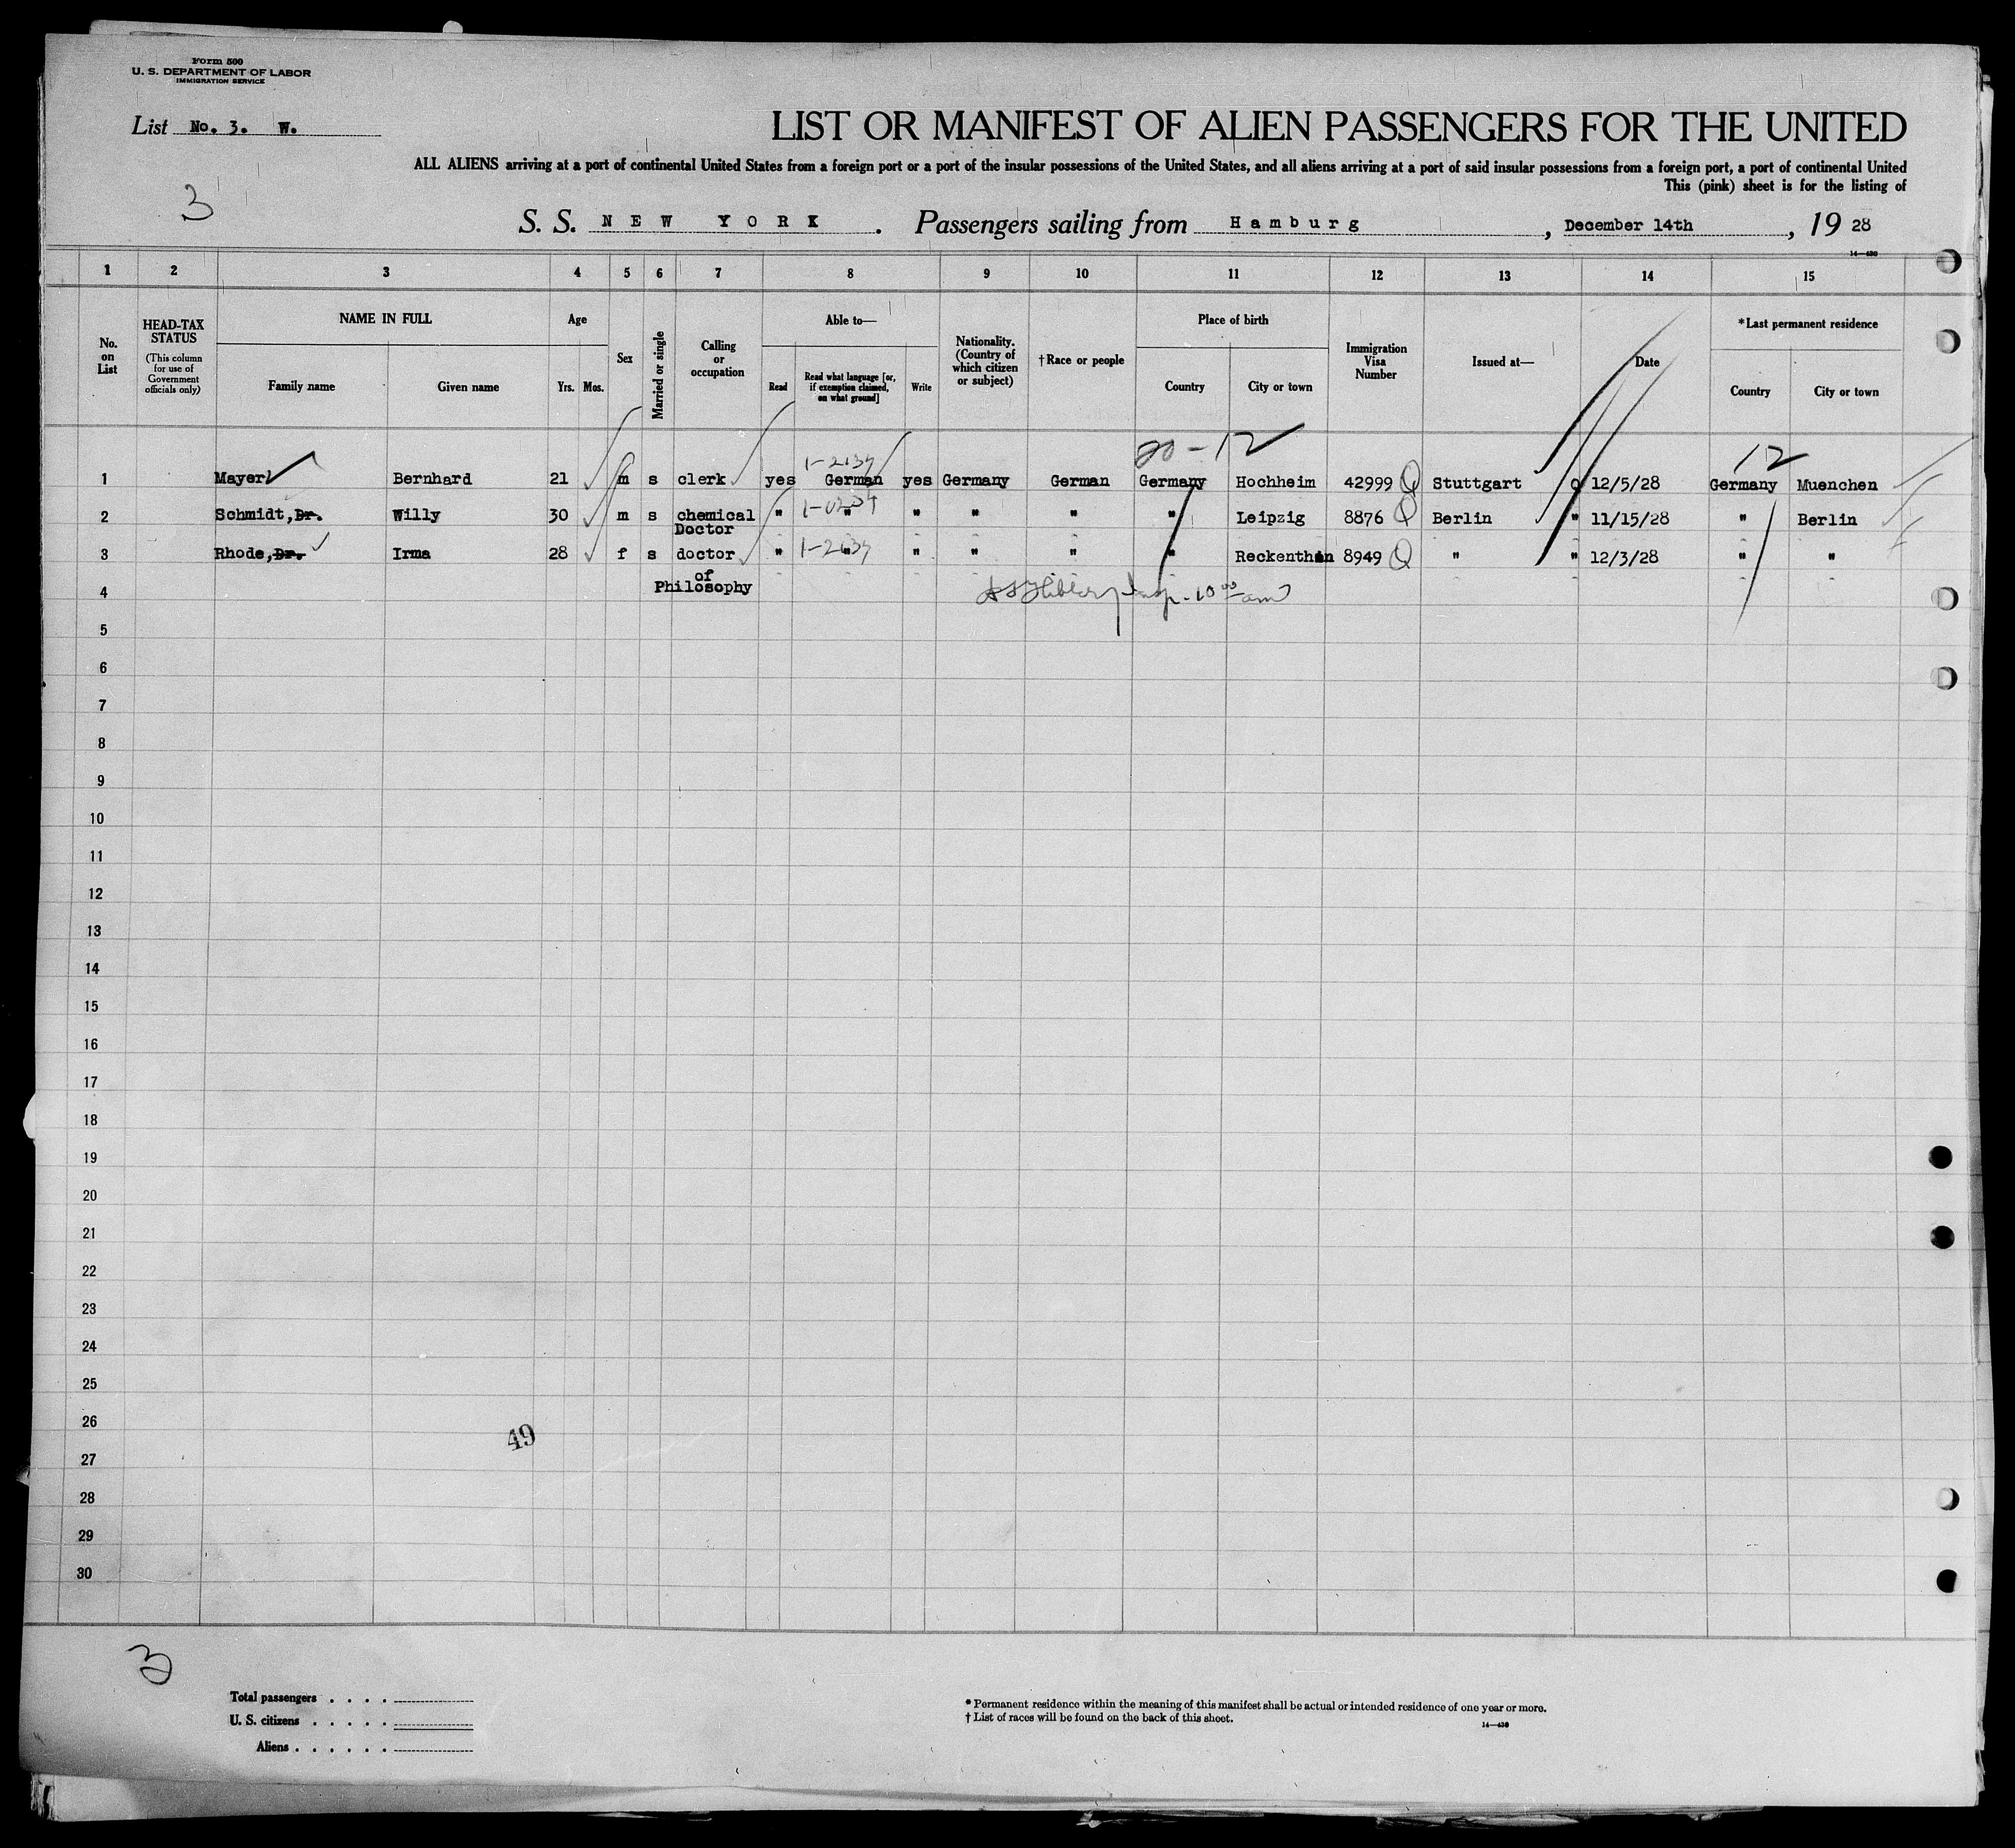 Form 500
U. S. DEPARTMENT OF LABOR
IMMIGRATION SERVICE
List No. 3. W.
LIST OR MANIFEST OF ALIEN PASSENGERS FOR THE UNITED
ALL ALIENS arriving at a port of continental United States from a foreign port or a port of the insular possessions of the United States, and all aliens arriving at a port of said insular possessions from a foreign port, a port of continental United
This (pink) sheet is for the listing of
3
S. S. NEW YORK. Passengers sailing from Hamburg, December 14th, 19 28
14—430
1 2 3 4 5 6 7 8 9 10 11 12 13 14 15
No. on List
HEAD-TAX STATUS
(This column for use of Government officials only)
NAME IN FULL
Family name Given name
Age
Yrs. Mos.
Sex
Married or single
Calling or occupation
Able to—
Read
Read what language [or, if exemption claimed, on what ground]
Write
Nationality. (Country of which citizen or subject)
† Race or people
Place of birth
Country City or town
Immigration Visa Number
Issued at—
Date
* Last permanent residence
Country City or town
20-12 12
1 Mayer Bernhard 21 m s clerk yes German yes Germany German Germany Hochheim 42999 Q Stuttgart Q 12/5/28 Germany Muenchen
2 Schmidt, Dr. Willy 30 m s chemical Doctor " " " " " " Leipzig 8876 Q Berlin " 11/15/28 " Berlin
3 Rhode, Dr. Irma 28 f s doctor " " " " " " 8949 Q " " 12/3/28 " "
of
Philosophy
4
5
6
7
8
9
10
11
12
13
14
15
16
17
18
19
20
21
22
23
24
25
26
49
27
28
29
30
3
Total passengers . . . .
U. S. citizens . . . . .
Aliens . . . . . .
* Permanent residence within the meaning of this manifest shall be actual or intended residence of one year or more.
† List of races will be found on the back of this sheet.
14—430